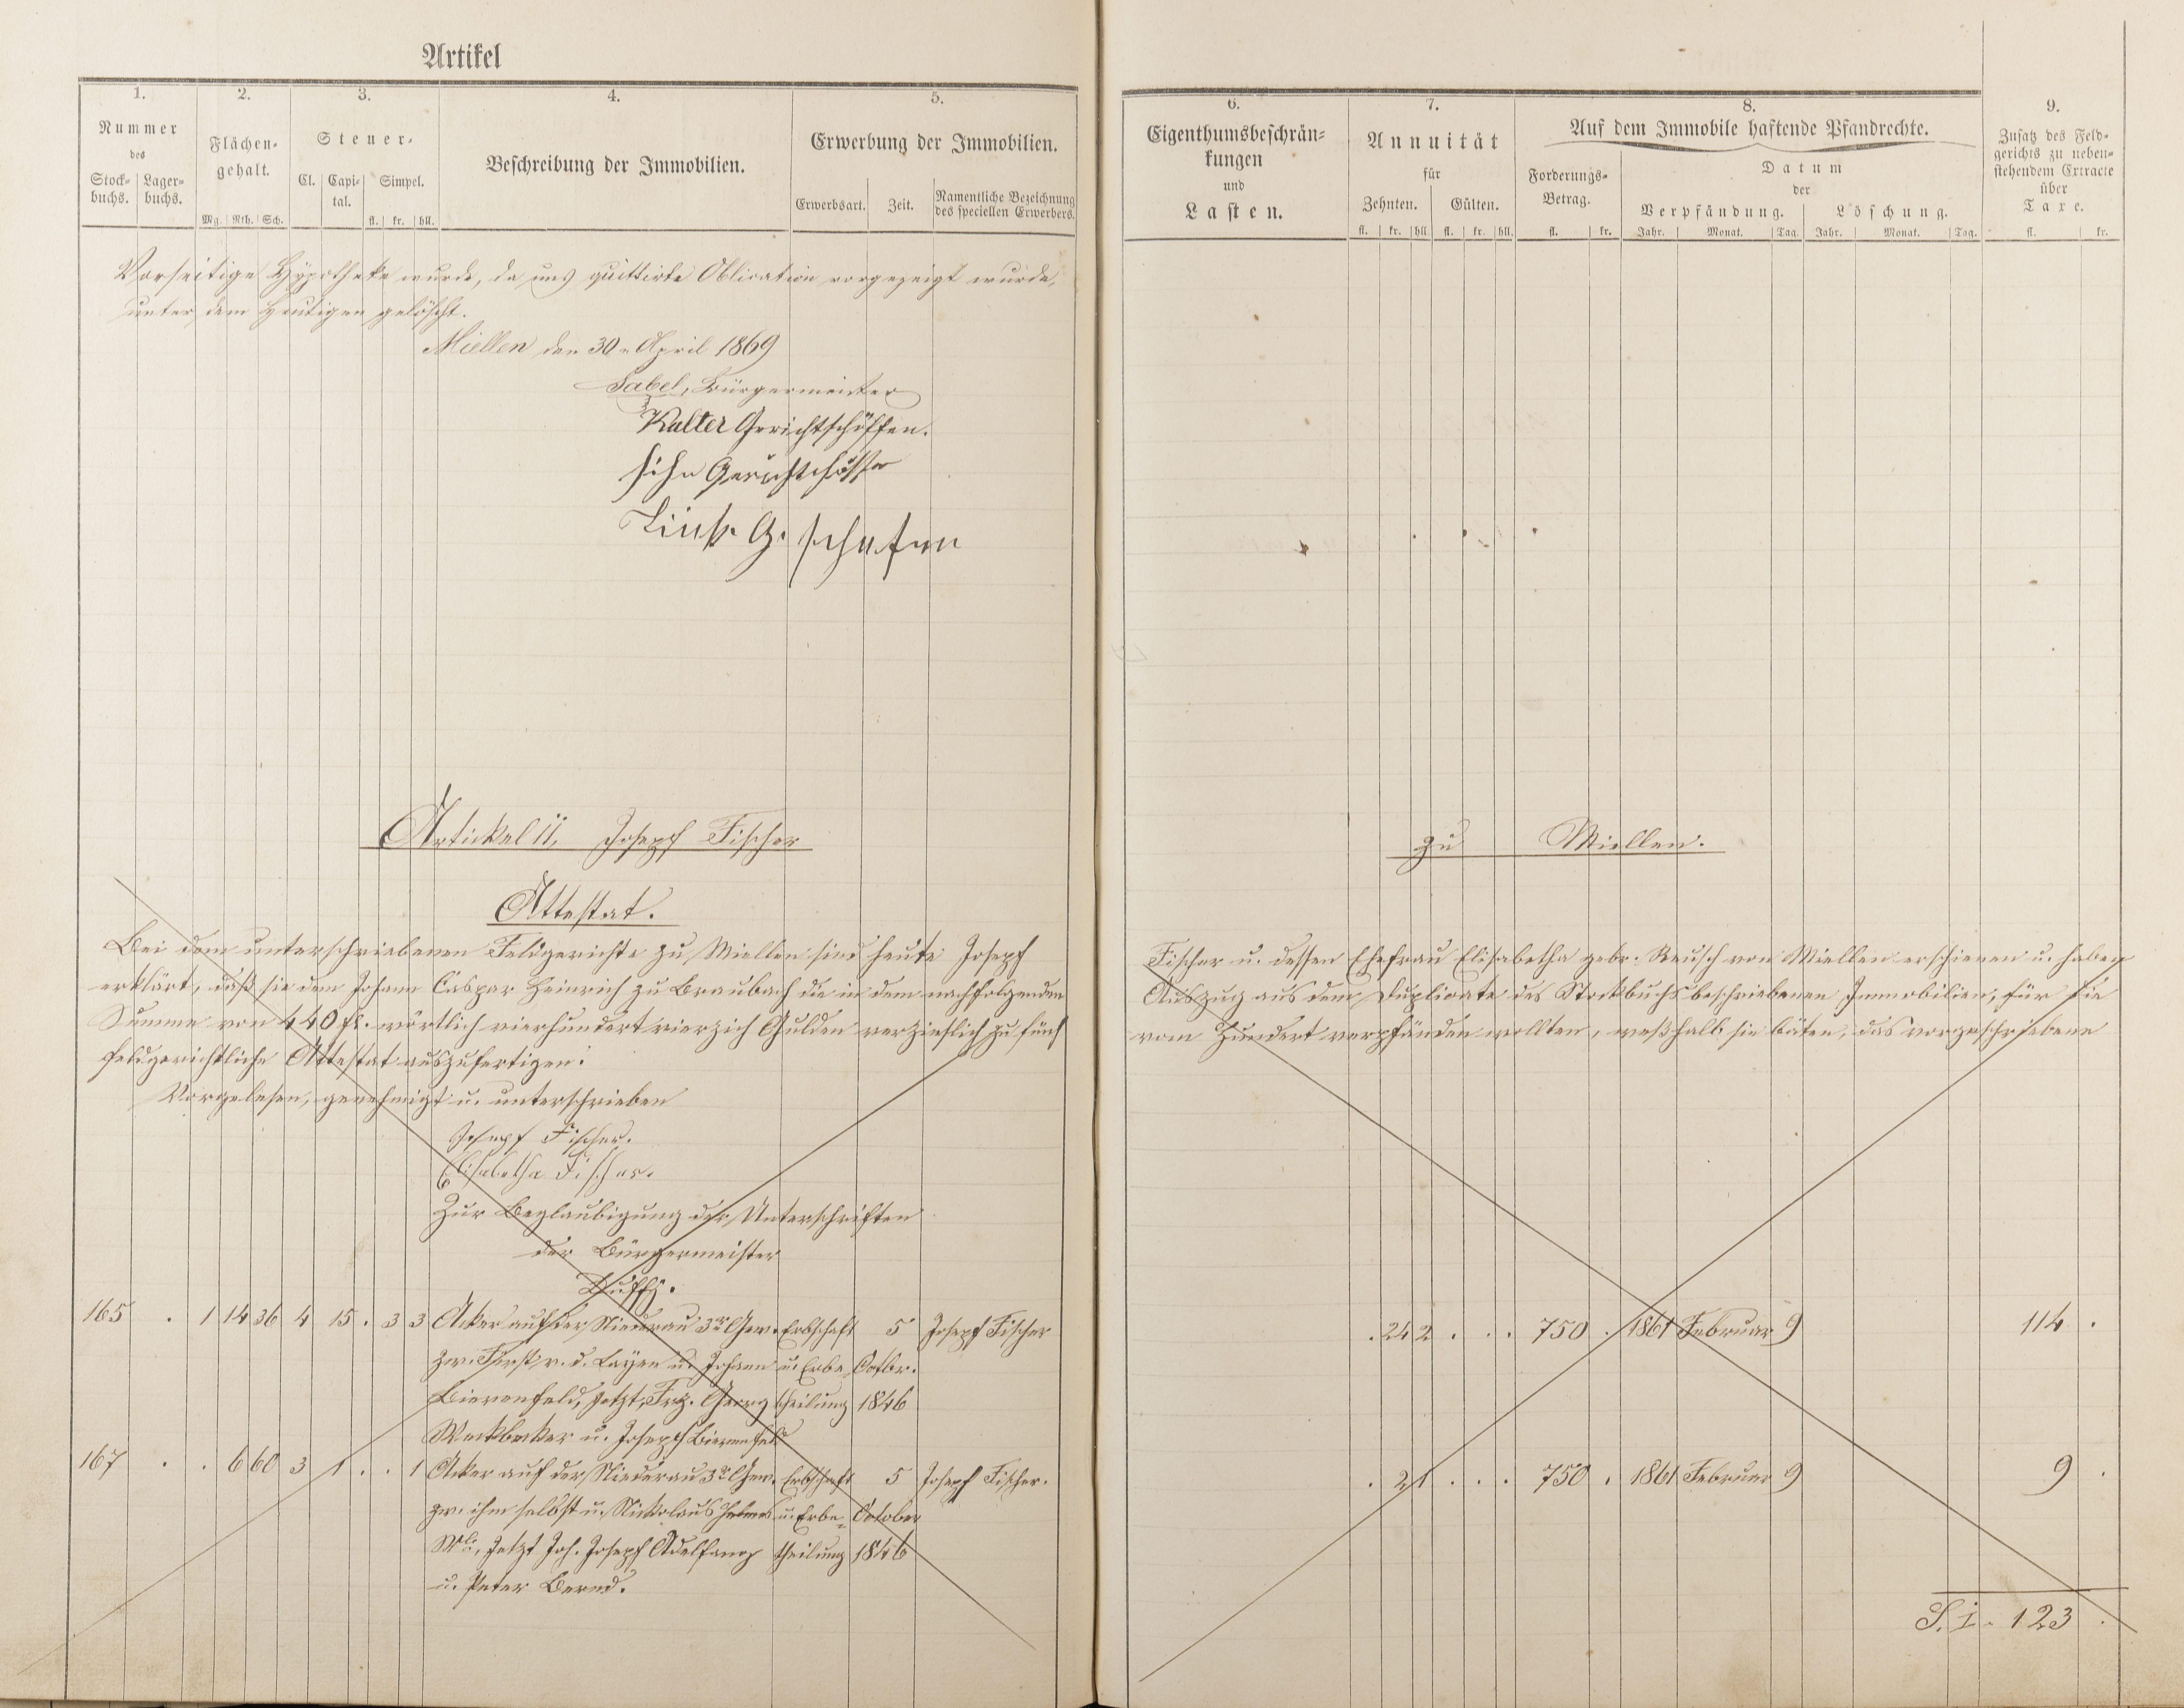 Artikel
1.
2.
3.
4.
5.
Nummer
des
Stock-
buchs.
Lager-
buchs.
Flächen-
gehalt.
Mg. Rth. Sch.
Steuer-
Cl.
Capi-
tal.
Simpel.
fl. kr. hll.
Beschreibung der Immobilien.
Erwerbung der Immobilien.
Erwerbsart.
Zeit.
Namentliche Bezeichnung
des speciellen Erwerbers.
Vorseitige Hypotheke wurde, da uns quittirte Oblication vorgezeigt wurde,
unter dem Heutigen gelöscht.
Miellen den 30n April 1869
Sabel, Bürgermeister
Kalter Gerichtschöffen.
Gerichtschöffe
Artickel 11, Joseph Fischer
Attestat.
Bei dem unterschriebenen Feldgerichte zu Miellen sind heute Joseph
erklärt, daß sie dem Johann Caspar Heinrich zu Braubach die in dem nachfolgenden
Summe von 440 fl. wörtlich vierhundert vierzich Gulden verzinslich zu fünf
feldgerichtliche Attestat auszufertigen.
Vorgelesen, genehmigt u. unterschrieben
Joseph Fischer.
Elisabetha Fischer.
Zur Beglaubigung der Unterschriften
der Bürgermeister
165 . 1 14 36 4 15 . 3 3 Acker auf der Niederau 3r Gew. Erbschaft 5 Joseph Fischer
zw. Fürst v. d. Layen u. Johann u. Erbe Octbr.
Bierenfeld, jetzt Frz. Georg theilung 1846
Weckbecker u. Joseph Bierenfeld
167 . . 6 60 3 1 . . 1 Acker auf der Niederau 3r Gew. Erbschaft 5 Joseph Fischer.
zw. ihm selbst u. Nickolaus u. Erbe- October
jetzt Joh. Joseph Adelfang theilung 1846
u. Peter Bernd.
6.
7.
8.
9.
Eigenthumsbeschrän-
kungen
und
Lasten.
Annuität
für
Zehnten.
Gülten.
fl. kr. hll. fl. kr. hll.
Auf dem Immobile haftende Pfandrechte.
Forderungs-
Betrag.
fl. kr.
Datum
der
Verpfändung.
Löschung.
Jahr. Monat. Tag. Jahr. Monat. Tag.
Zusatz des Feld-
gerichts zu neben-
stehendem Extracte
über
Taxe.
fl. kr.
zu Miellen.
Fischer u. dessen Ehefrau Elisabetha gebr. Reusch von Miellen erschienen u. haben
Auszug aus dem Duplicate des Stockbuchs beschriebenen Immobilien, für die
vom Hundert verpfänden wollten, weßhalb sie bäten, das vorgeschriebene
. 24 2 . . . 750 . 1861 Februar 9 114 .
. 2 1 . . . 750 . 1861 Februar 9 9 .
123 .